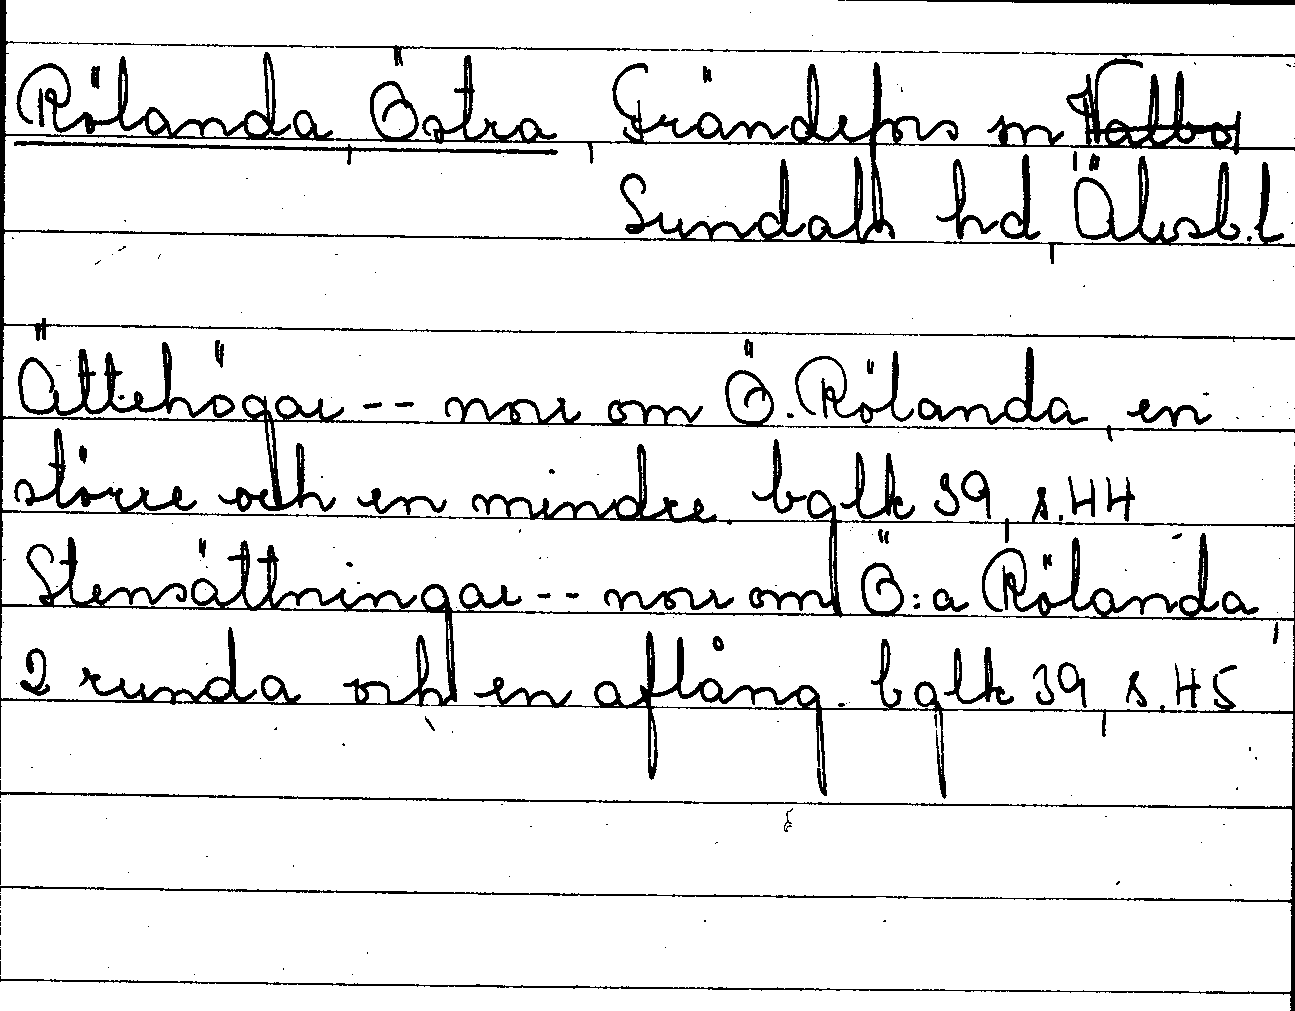 Rölanda, Östra, Frändefors sn Valbo,
Sundals hd, Älvsb.l
Ättehögar -- norr om Ö. Rölanda, en
större och en mindre. bglk 39, s.44
Stensättningar -- norr om Ö:a Rölanda,
2 runda och en aflång. bglk 39, s.45